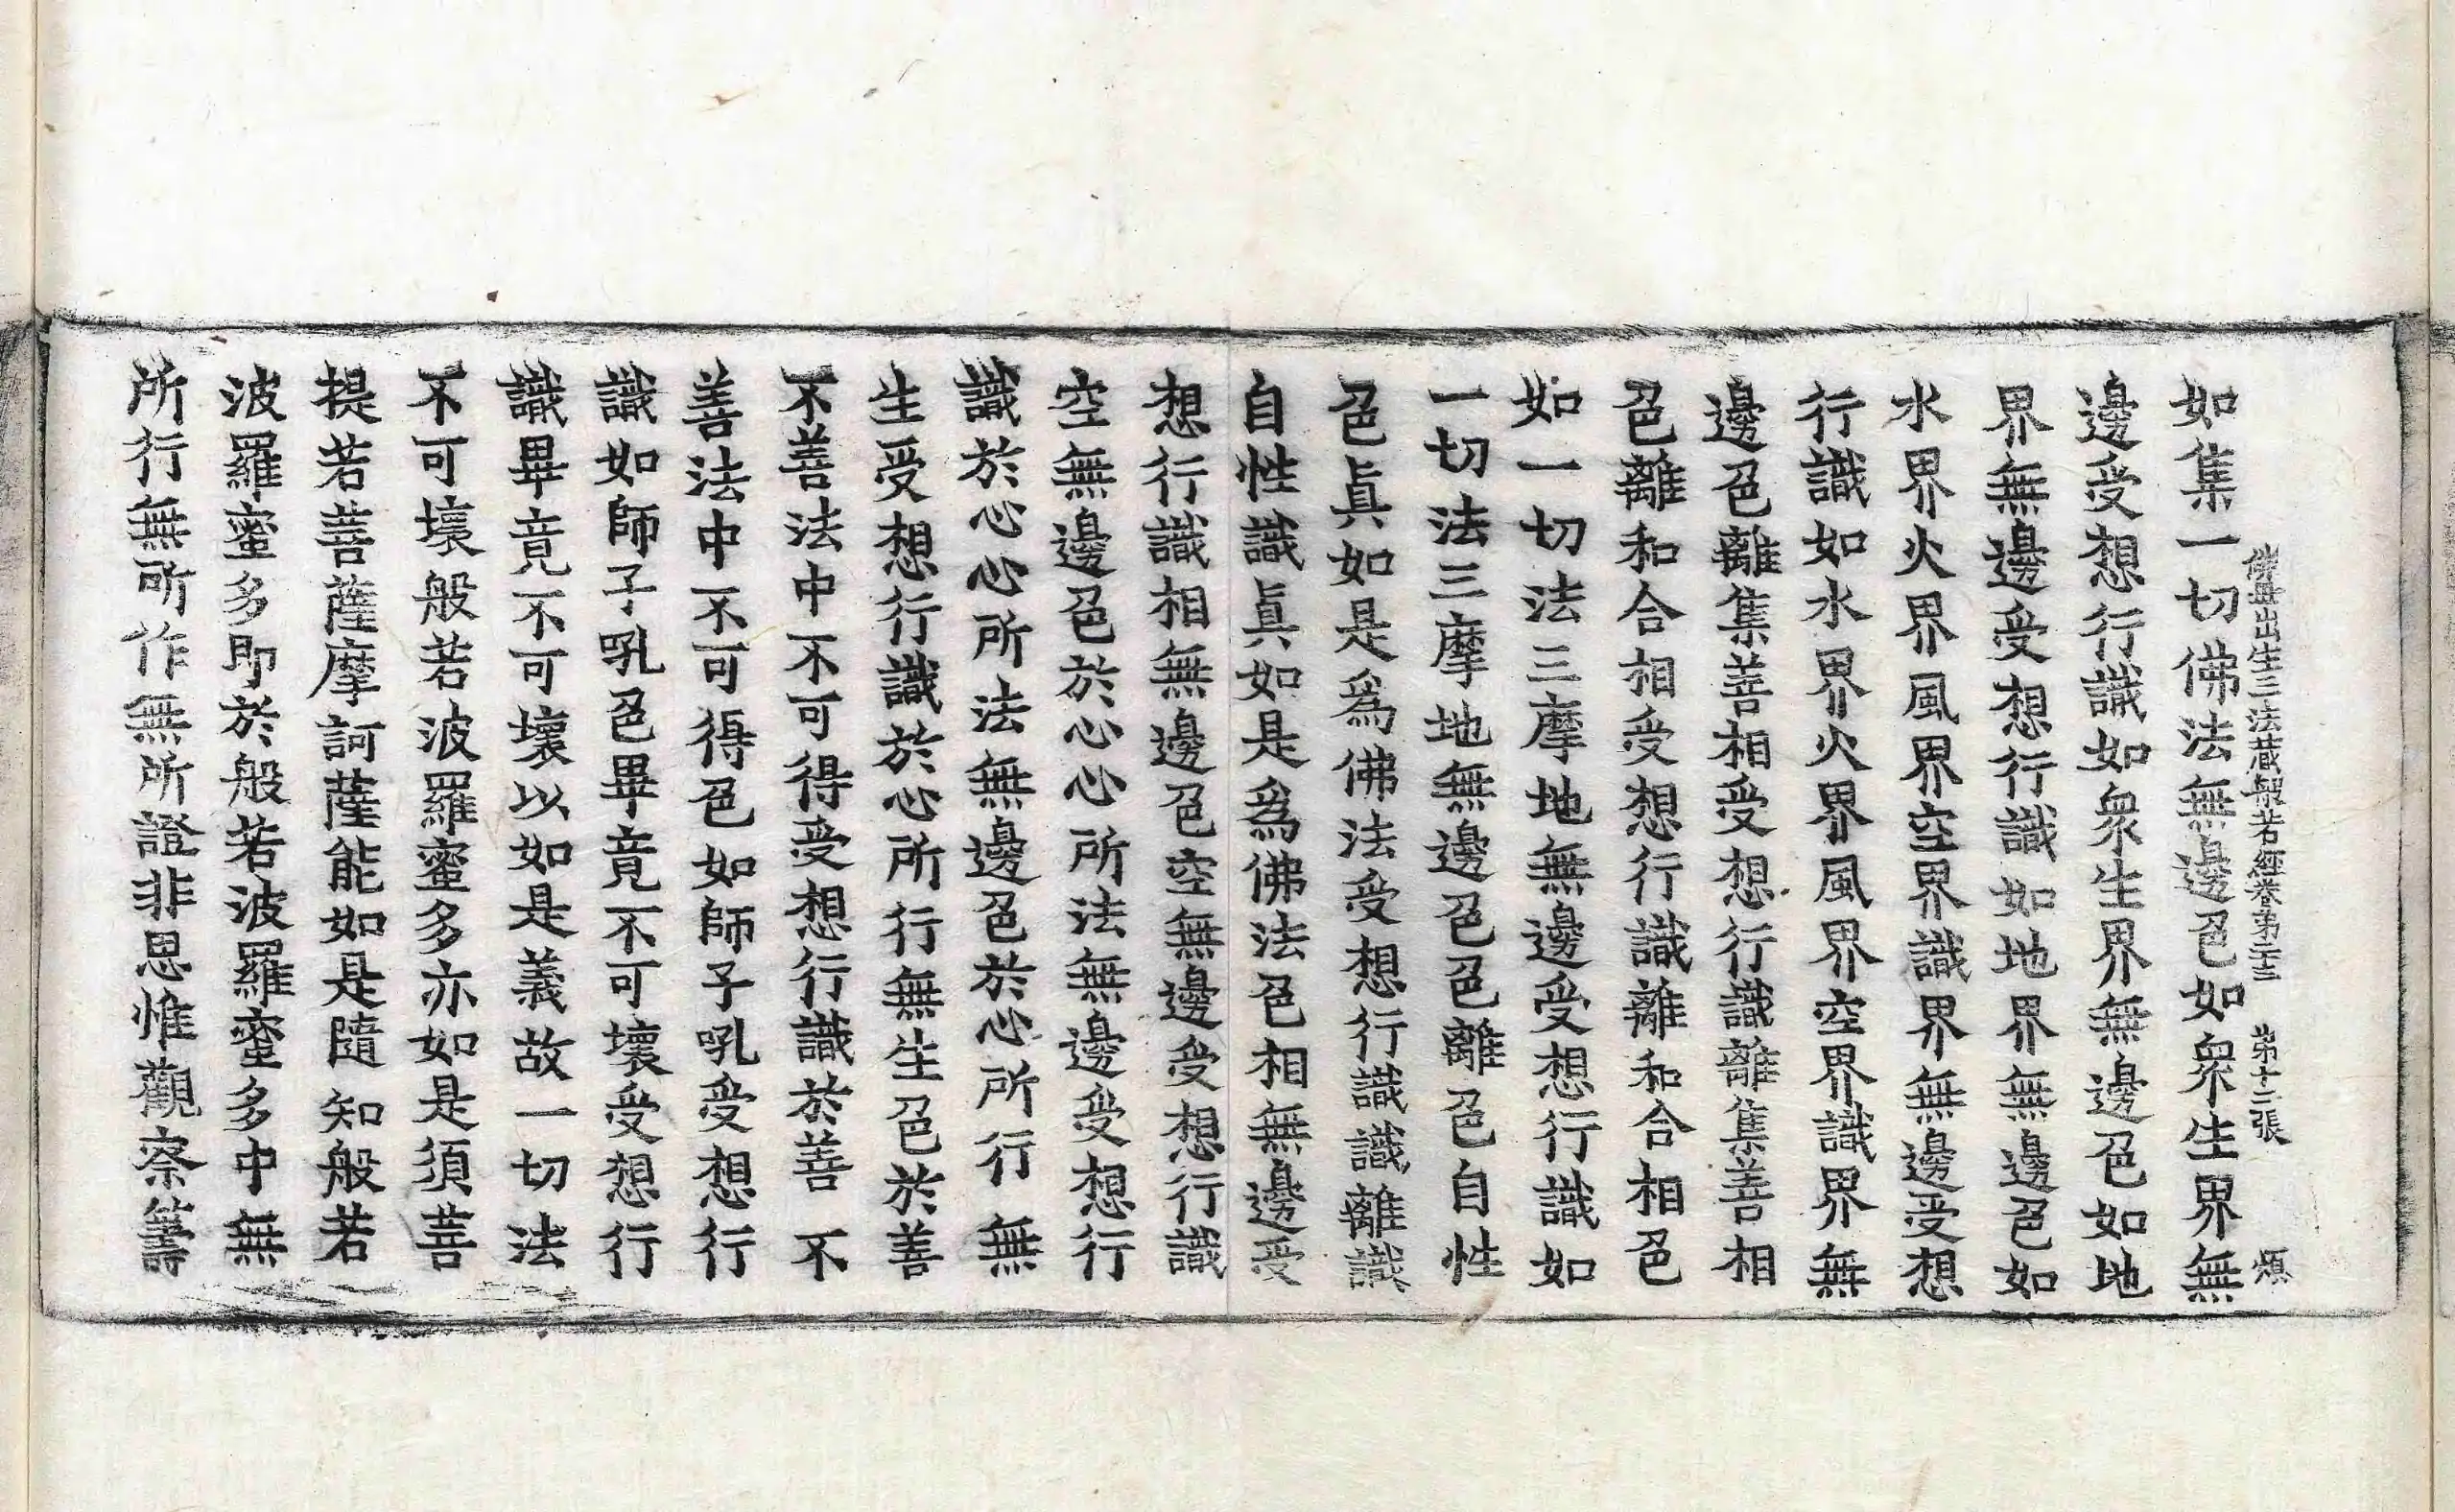 佛母出生三法藏般若經卷第二十三 第十三張 煩
如集一切佛法無邊色如衆生界無
邊受想行識如衆生界無邊色如地
界無邊受想行識如地界無邊色如
水界火界風界空界識界無邊受想
行識如水界火界風界空界識界無
邊色離集善相受想行識離集善相
色離和合相受想行識離和合相色
如一切法三摩地無邊受想行識如
一切法三摩地無邊色色離色自性
色眞如是爲佛法受想行識識離識
自性識眞如是爲佛法色相無邊受
想行識相無邊色空無邊受想行識
空無邊色於心心所法無邊受想行
識於心心所法無邊色於心所行無
生受想行識於心所行無生色於善
不善法中不可得受想行識於善不
善法中不可得色如師子吼受想行
識如師子吼色畢竟不可壞受想行
識畢竟不可壞以如是義故一切法
不可壞般若波羅蜜多亦如是須菩
提若菩薩摩訶薩能如是隨知般若
波羅蜜多即於般若波羅蜜多中無
所行無所作無所證非思惟觀察籌